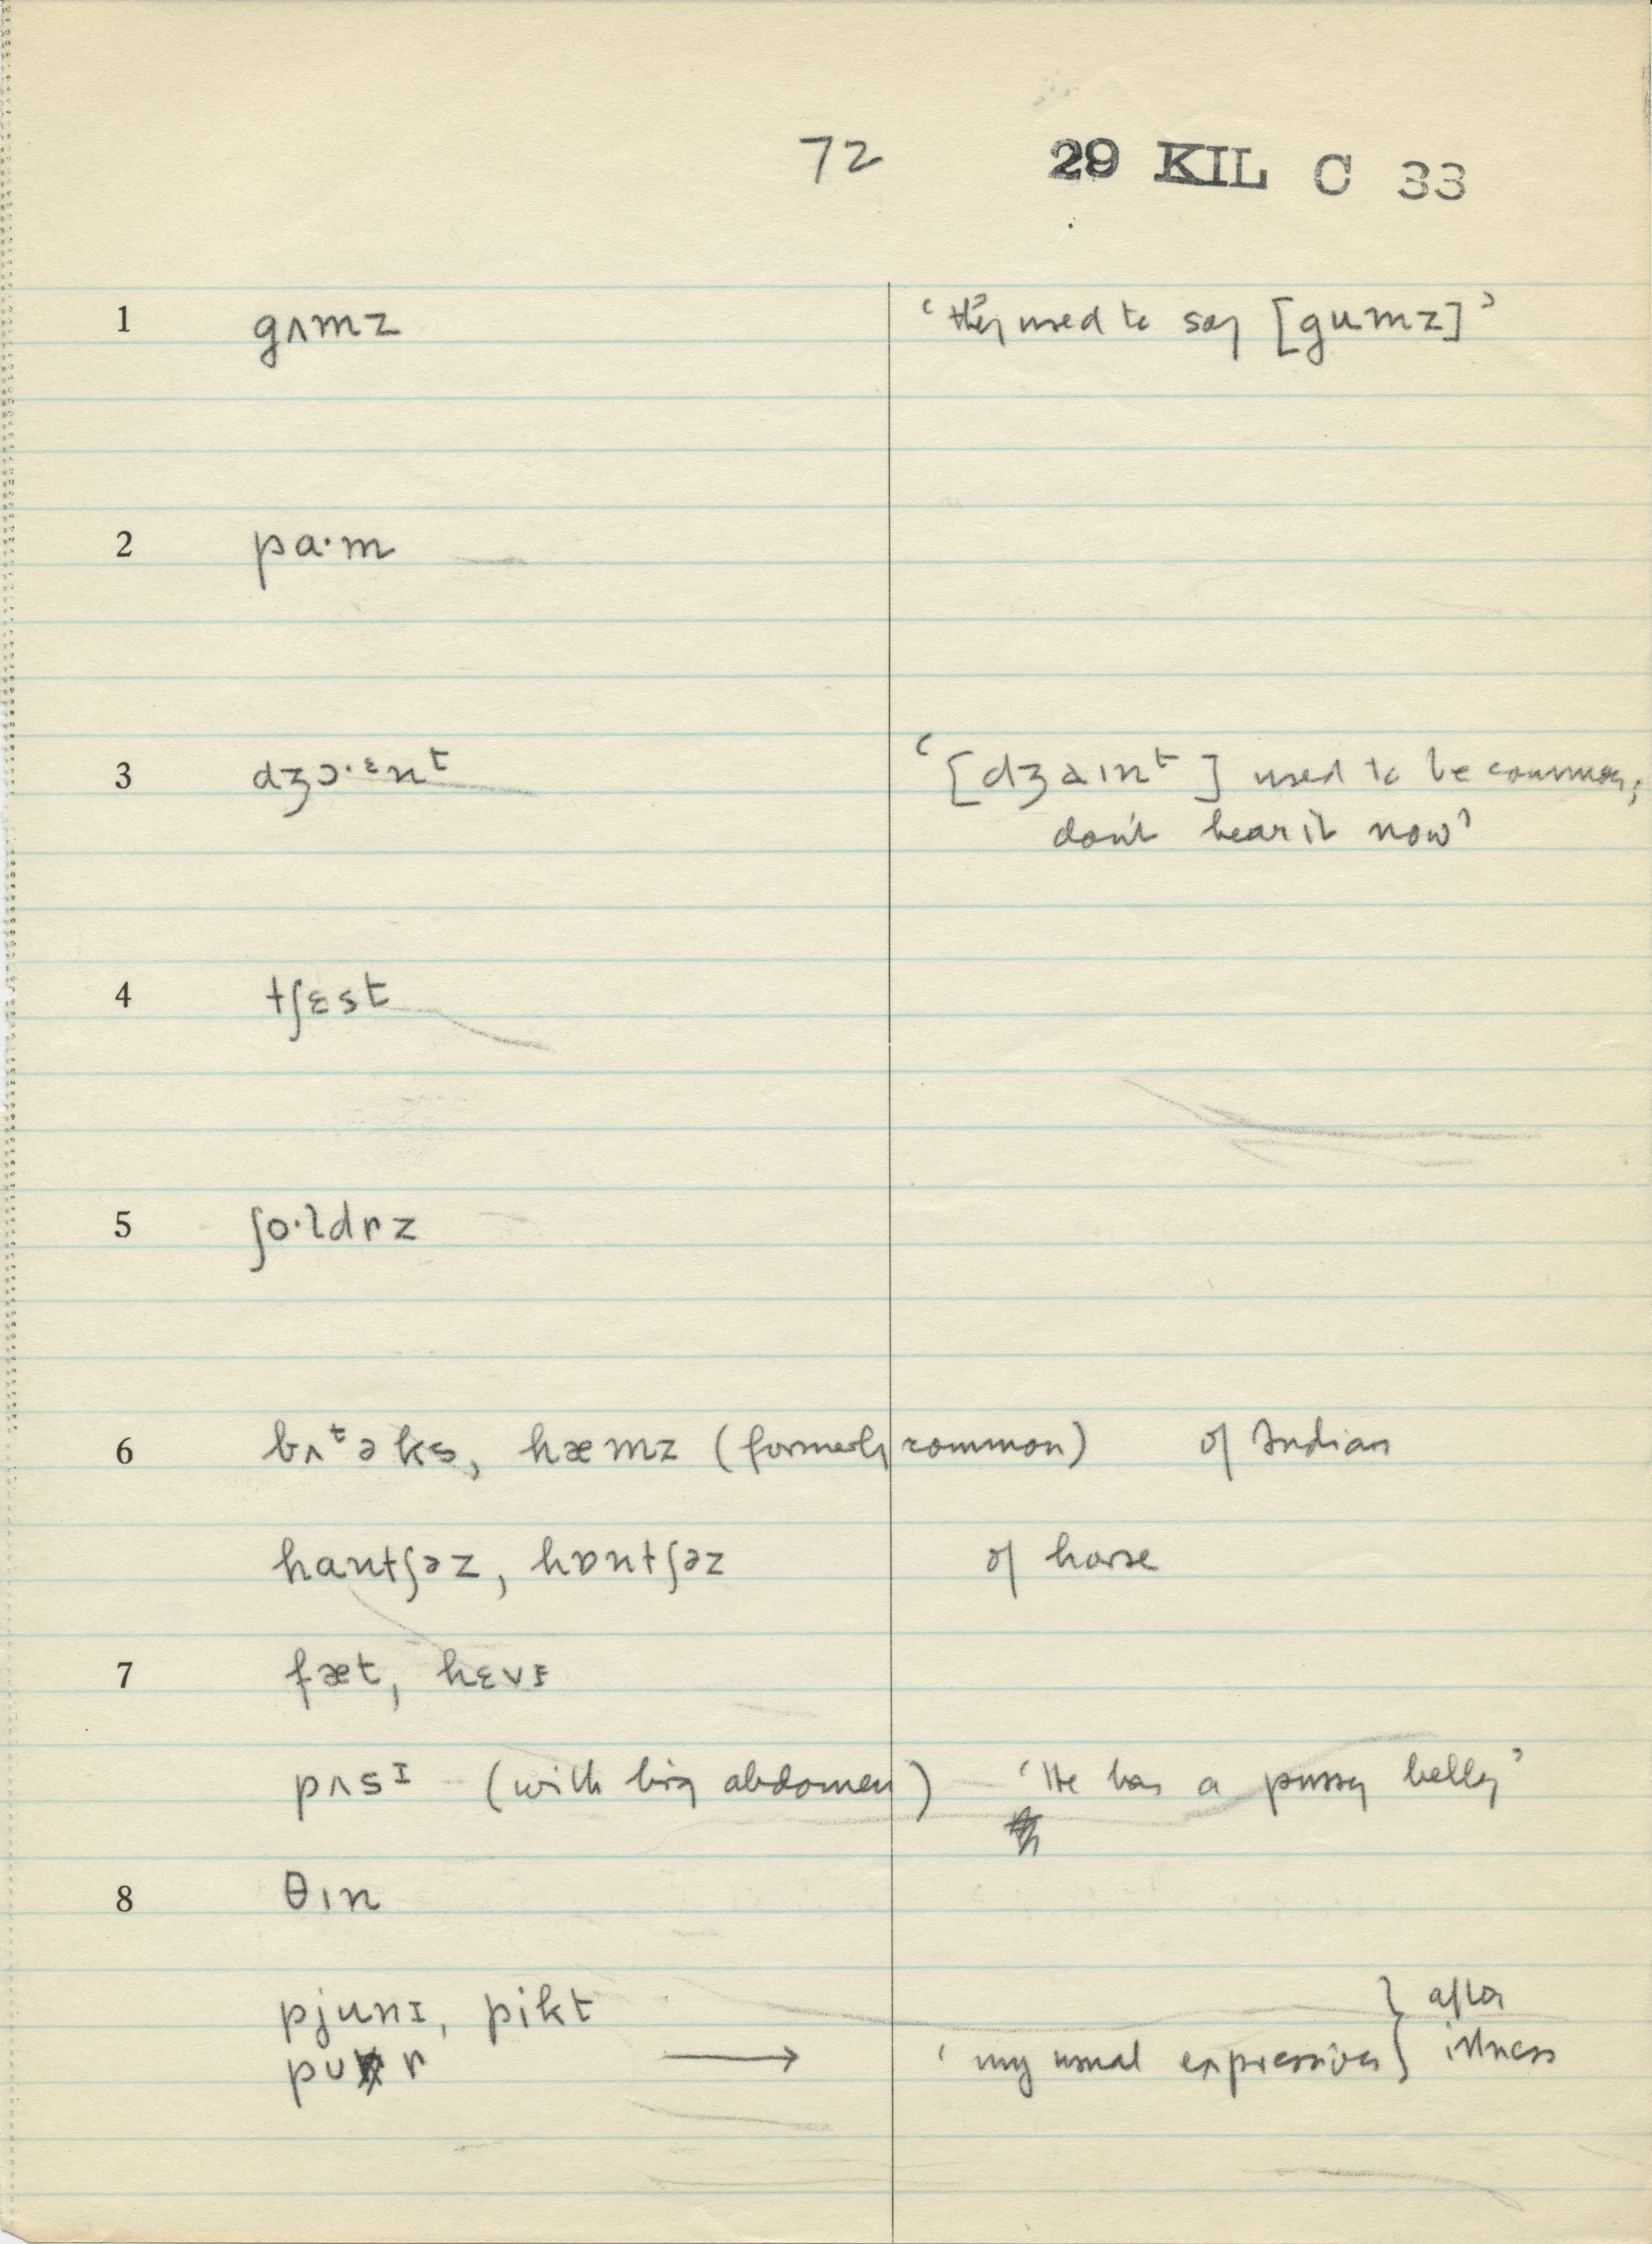 72 29 KIL C 33
1 gʌmz ‘they used to say [gumz]’
2 pa·m
3 dʒɔ·ᵋnᵗ ‘[dʒaɪnᵗ] used to be common,
don't hear it now’
4 tʃɛst
5 ʃo·ldrz
6 bʌᵗəks, hæmz (formerly common) of Indian
hantʃəz, hɒntʃəz of horse
7 fæt, hɛvɪ
pʌsɪ (with big abdomen) ‘He has a pussy belly’
8 θɪn
pjunɪ, pikt } after
pʊr → ‘my usual expression } illness